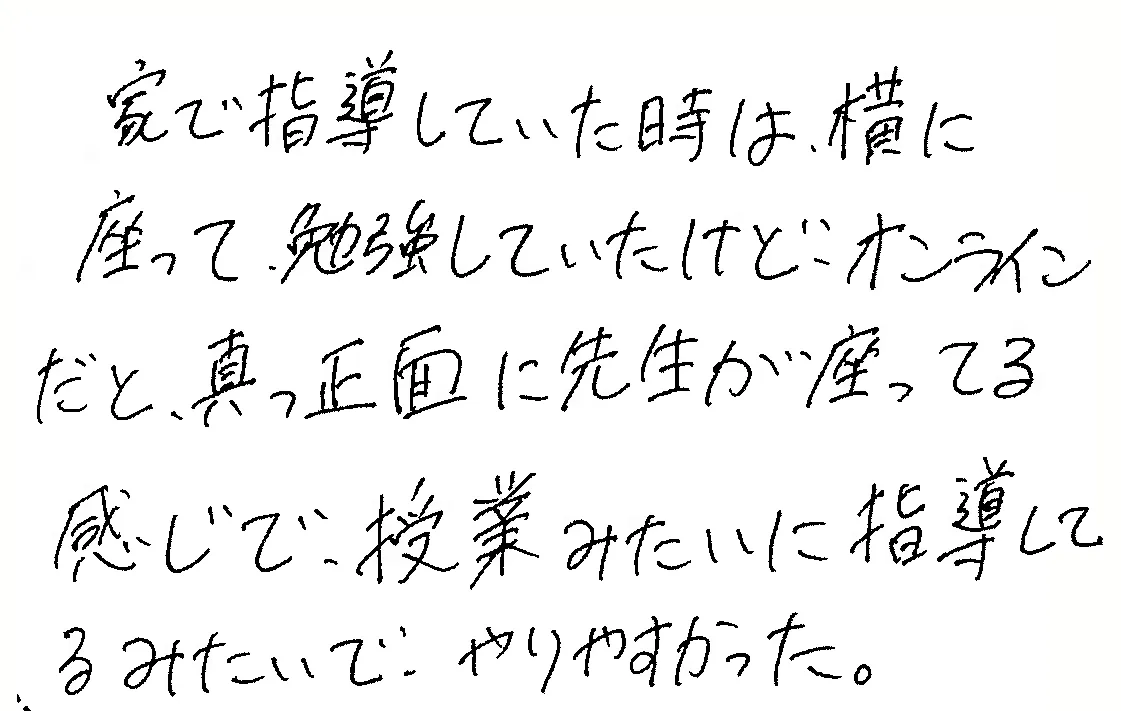 家で指導していた時は、横に
座って、勉強していたけど、オンライン
だと、真っ正面に先生が座ってる
感じで、授業みたいに指導して
るみたいで、やりやすかった。